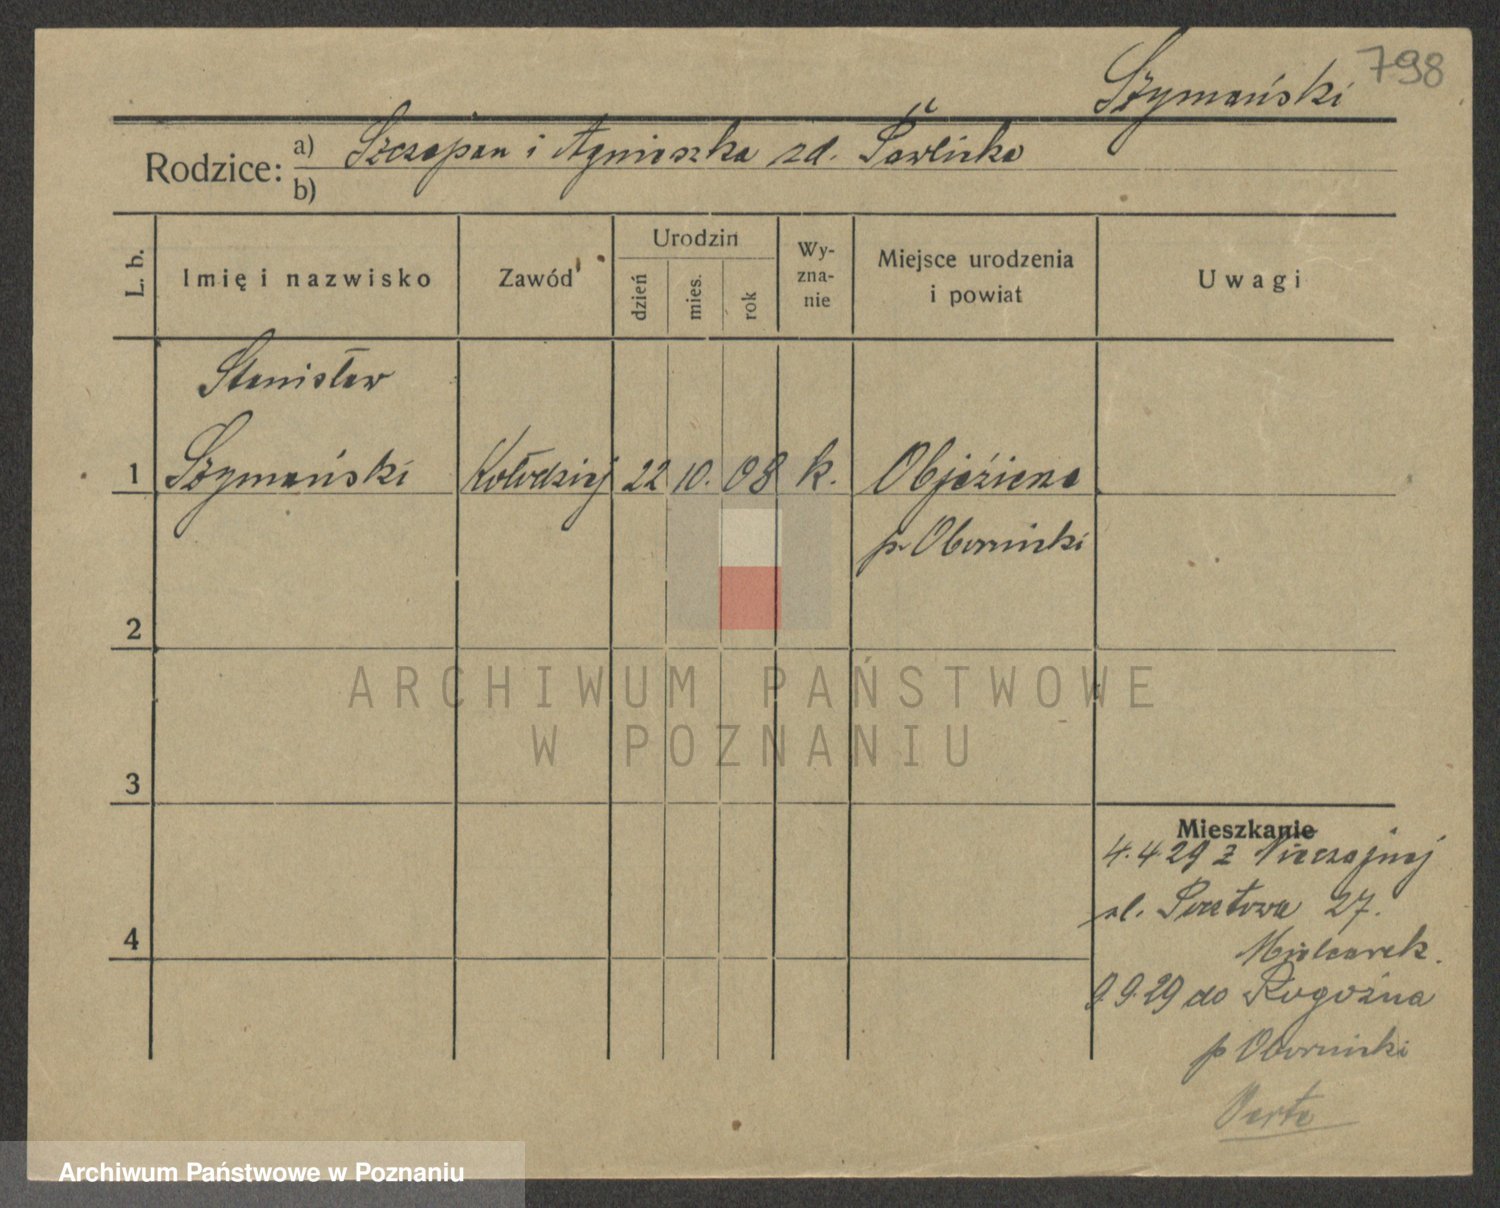 Szymański 798
Rodzice: a) Szczepan i Agnieszka zd. Pawlicka
b)
L. b. Imię i nazwisko Zawód Urodzin dzień mies. rok Wyznanie Miejsce urodzenia i powiat Uwagi
Stanisław
1 Szymański Kołodziej 22 10. 08 k. Objezierze
p. Obornicki
2
ARCHIWUM PAŃSTWOWE
W POZNANIU
3
Mieszkanie
4.4.29 z Nieczajnej
ul. Pocztowa 27.
4
Mielcarek.
9.9.29 do Rogoźna
p Obornicki
Verte
Archiwum Państwowe w Poznaniu